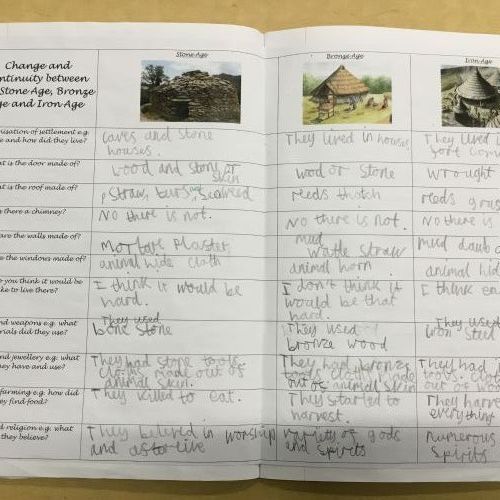 Stone Age
Bronze Age
Iron Age
Change and
ntinuity between
Stone Age, Bronze
ge and Iron Age
nisation of settlement e.g.
e and how did they live?
caves and stone
houses.
They lived in houses
They lived in
fort
at is the door made of?
wood and stone or
skin
wod or stone
wrought
at is the roof made of?
straw, turs, seaweed
reeds thatch
reads gras
there a chimney?
No there is not.
No there is not.
No there is
are the walls made of?
Mortare plaster
mud
wattle straw
mud daub
e the windows made of?
animal hide cloth
animal horn
animal hid
you think it would be
like to live there?
I think it would be
hard.
I don't think it
would be that
hard.
I think
nd weapons e.g. what
rials did they use?
They used
bone stone
They used
bronze wood
They used
iron steel
nd jewellery e.g. what
hey have and use?
They had stone tools
made out of
animal skin.
They had bronze
tools
out of animal skin
They had
out of wo
farming e.g. how did
ey find food?
They killed to eat.
They started to
harvest.
They harve
everything
d religion e.g. what
hey believe?
They beleved in worship
and
variety of gods
and spirits
numerous
spirits